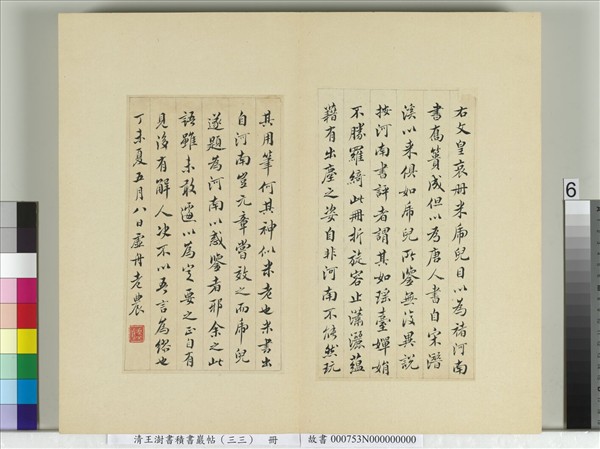 右文皇哀冊米虎兒目以為褚河南
書舊贊咸但以為唐人書自宋潛
溪以來俱如虎兒所鑒無復異說
按河南書評者謂其如瑤臺嬋娟
不勝羅綺此冊折旋容止瀟灑蘊
藉有出塵之姿自非河南不能然玩
其用筆何其神似米老也米書出
自河南豈元章嘗放之而虎兒
遂題為河南以惑鑒者邪余之此
語雖未敢遽以為定要之正自有
見後有解人決不以吾言為俗也
丁未夏五月八日虛舟老農
清王澍書積書巖帖（三三） 冊 故書 000753N000000000
6